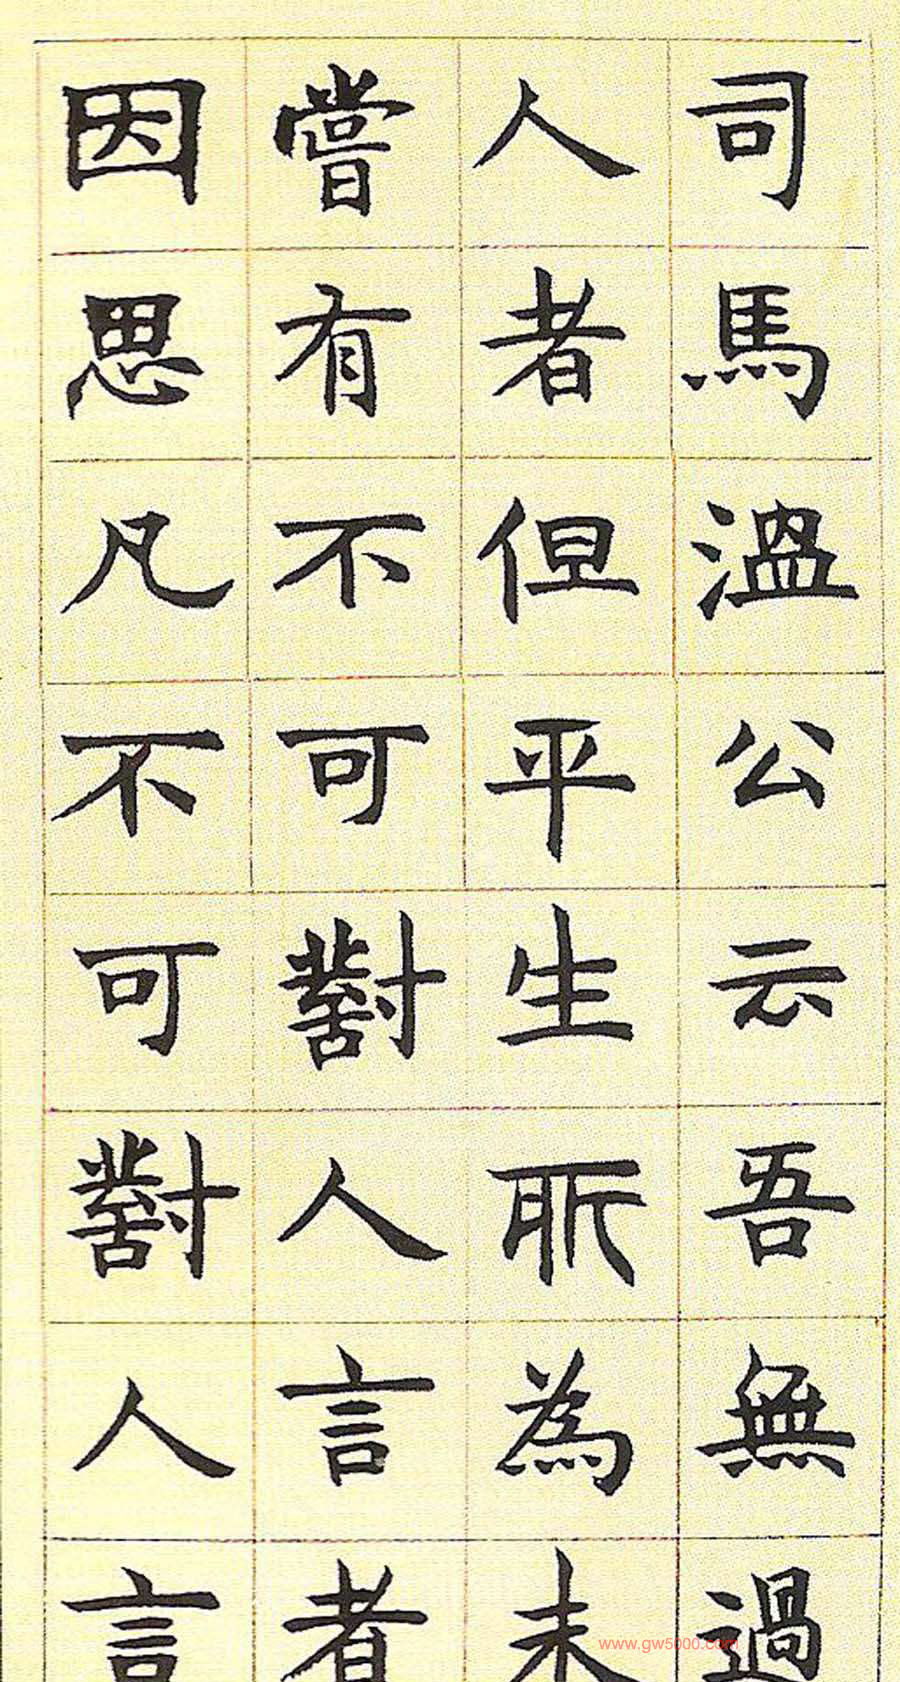 司馬溫公云吾無過
人者但平生所為未
嘗有不可對人言者
因思凡不可對人言
www.gw5000.com